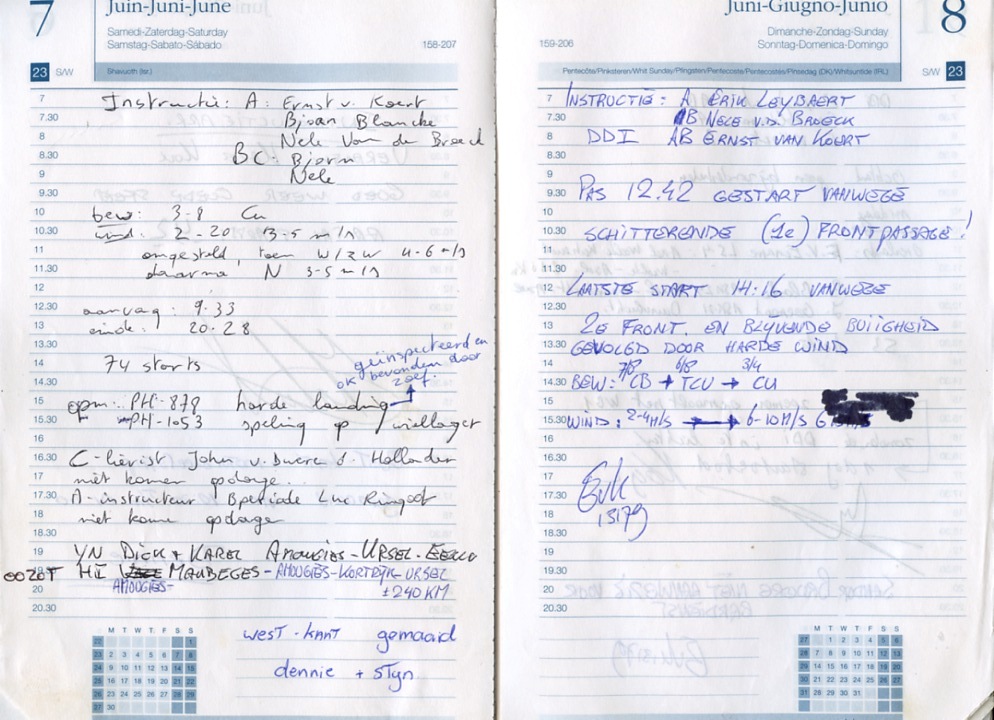 7
Juin-Juni-June
Samedi-Zaterdag-Saturday
Samstag-Sabato-Sábado
158-207
23 S/W
Shavuoth (Isr.)
7 Instructie: A: Ernst v. Koert
7.30 Bjorn Blancke
8 Nele Van de Broeck
8.30 BC: Bjorn
9 Nele
9.30
10 bew: 3-8 Cu
10.30 wind: 2-20 3-5 m/s
11 omgesteld, toen W/ZW 4-6 m/s
11.30 daarna N 3-5 m/s
12
12.30 aanvag: 9.33
13 einde: 20.28
13.30
14 74 starts
geïnspecteerd en
ok bevonden door
14.30 zoef.
15 opm: PH-879 harde landing
15.30 PH-1053 speling op wiellager
16
16.30 C-lierist John v. Hollander
17 niet komen opdagen
17.30 A-instructeur Luc Ringoot
18 niet komen opdagen
18.30
19 YN DICK + KAREL AMOUGIES-URSEL-EEKLO
19.30 OOZOT HI MAUBEGES-AMOUGIES-KORTRIJK-URSEL
20 AMOUGIES- ±240 KM
20.30
WEST-KANT gemaaid
dennie + STYn
M T W T F S S
22 1
23 2 3 4 5 6 7 8
24 9 10 11 12 13 14 15
25 16 17 18 19 20 21 22
26 23 24 25 26 27 28 29
27 30
8
Juni-Giugno-Junio
Dimanche-Zondag-Sunday
Sonntag-Domenica-Domingo
159-206
S/W 23
Pentecôte/Pinksteren/Whit Sunday/Pfingsten/Pentecoste/Pentecostés/Pinsedag (DK)/Whitsuntide (IRL)
7 INSTRUCTIE: A ERIK LEYBAERT
7.30 B NELE V.D. BROECK
8 DDI AB ERNST VAN KOERT
8.30
9
9.30 PAS 12.42 GESTART VANWEGE
10
10.30 SCHITTERENDE (1e) FRONTPASSAGE!
11
11.30
12 LAATSTE START 14:16 VANWEGE
12.30
13 2e FRONT. EN BLIJVENDE BUIIGHEID
13.30 GEVOLGD DOOR HARDE WIND
14 7/8 6/8 3/4
14.30 BEW: CB → TCU → CU
15
15.30 WIND: 2-4M/S → 6-10M/S
16
16.30
17
17.30 Erik
18 13179
18.30
19
19.30
20
20.30
M T W T F S S
27 1 2 3 4 5 6
28 7 8 9 10 11 12 13
29 14 15 16 17 18 19 20
30 21 22 23 24 25 26 27
31 28 29 30 31